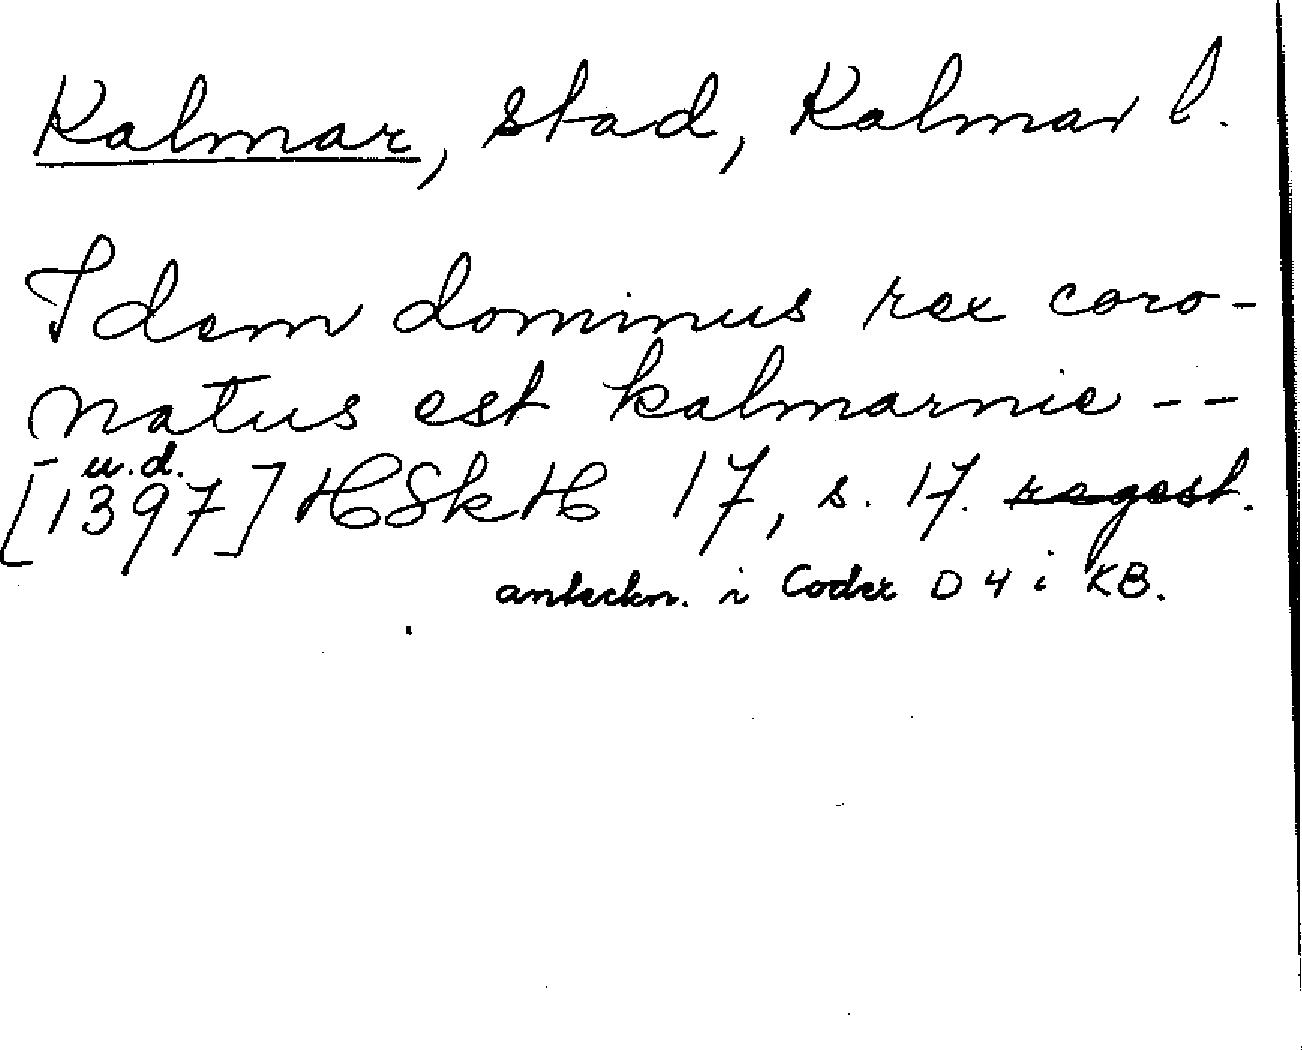 Kalmar, stad, Kalmar l.
Idem dominus rex coro-
natus est kalmarnie --
u.d.
[1397] HSkH 17, s. 17. regest.
anteckn. i Codex D 4 i KB.